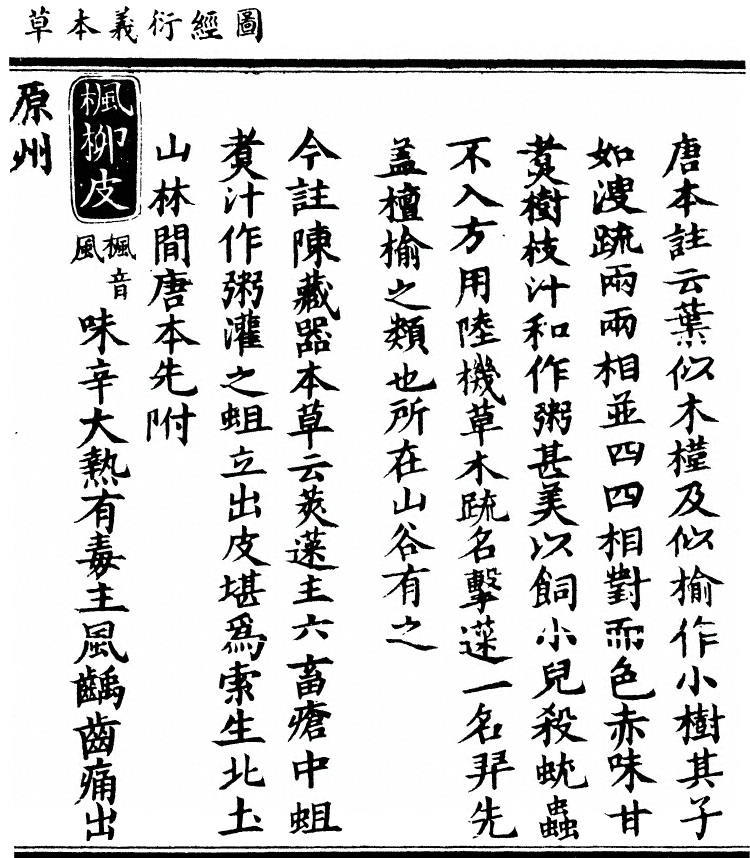 圖經衍義本草
唐本註云葉似木槿及似榆作小樹其子
如溲疏兩兩相並四四相對而色赤味甘
煑樹枝汁和作粥甚美以飼小兒殺蚘蟲
不入方用陸機草木疏名擊蒾一名羿先
盖檀榆之類也所在山谷有之
今註陳藏器本草云莢蒾主六畜瘡中蛆
煑汁作粥灌之蛆立出皮堪爲索生北土
山林間唐本先附
楓柳皮 楓音風 味辛大熱有毒主風齲齒痛出
原州